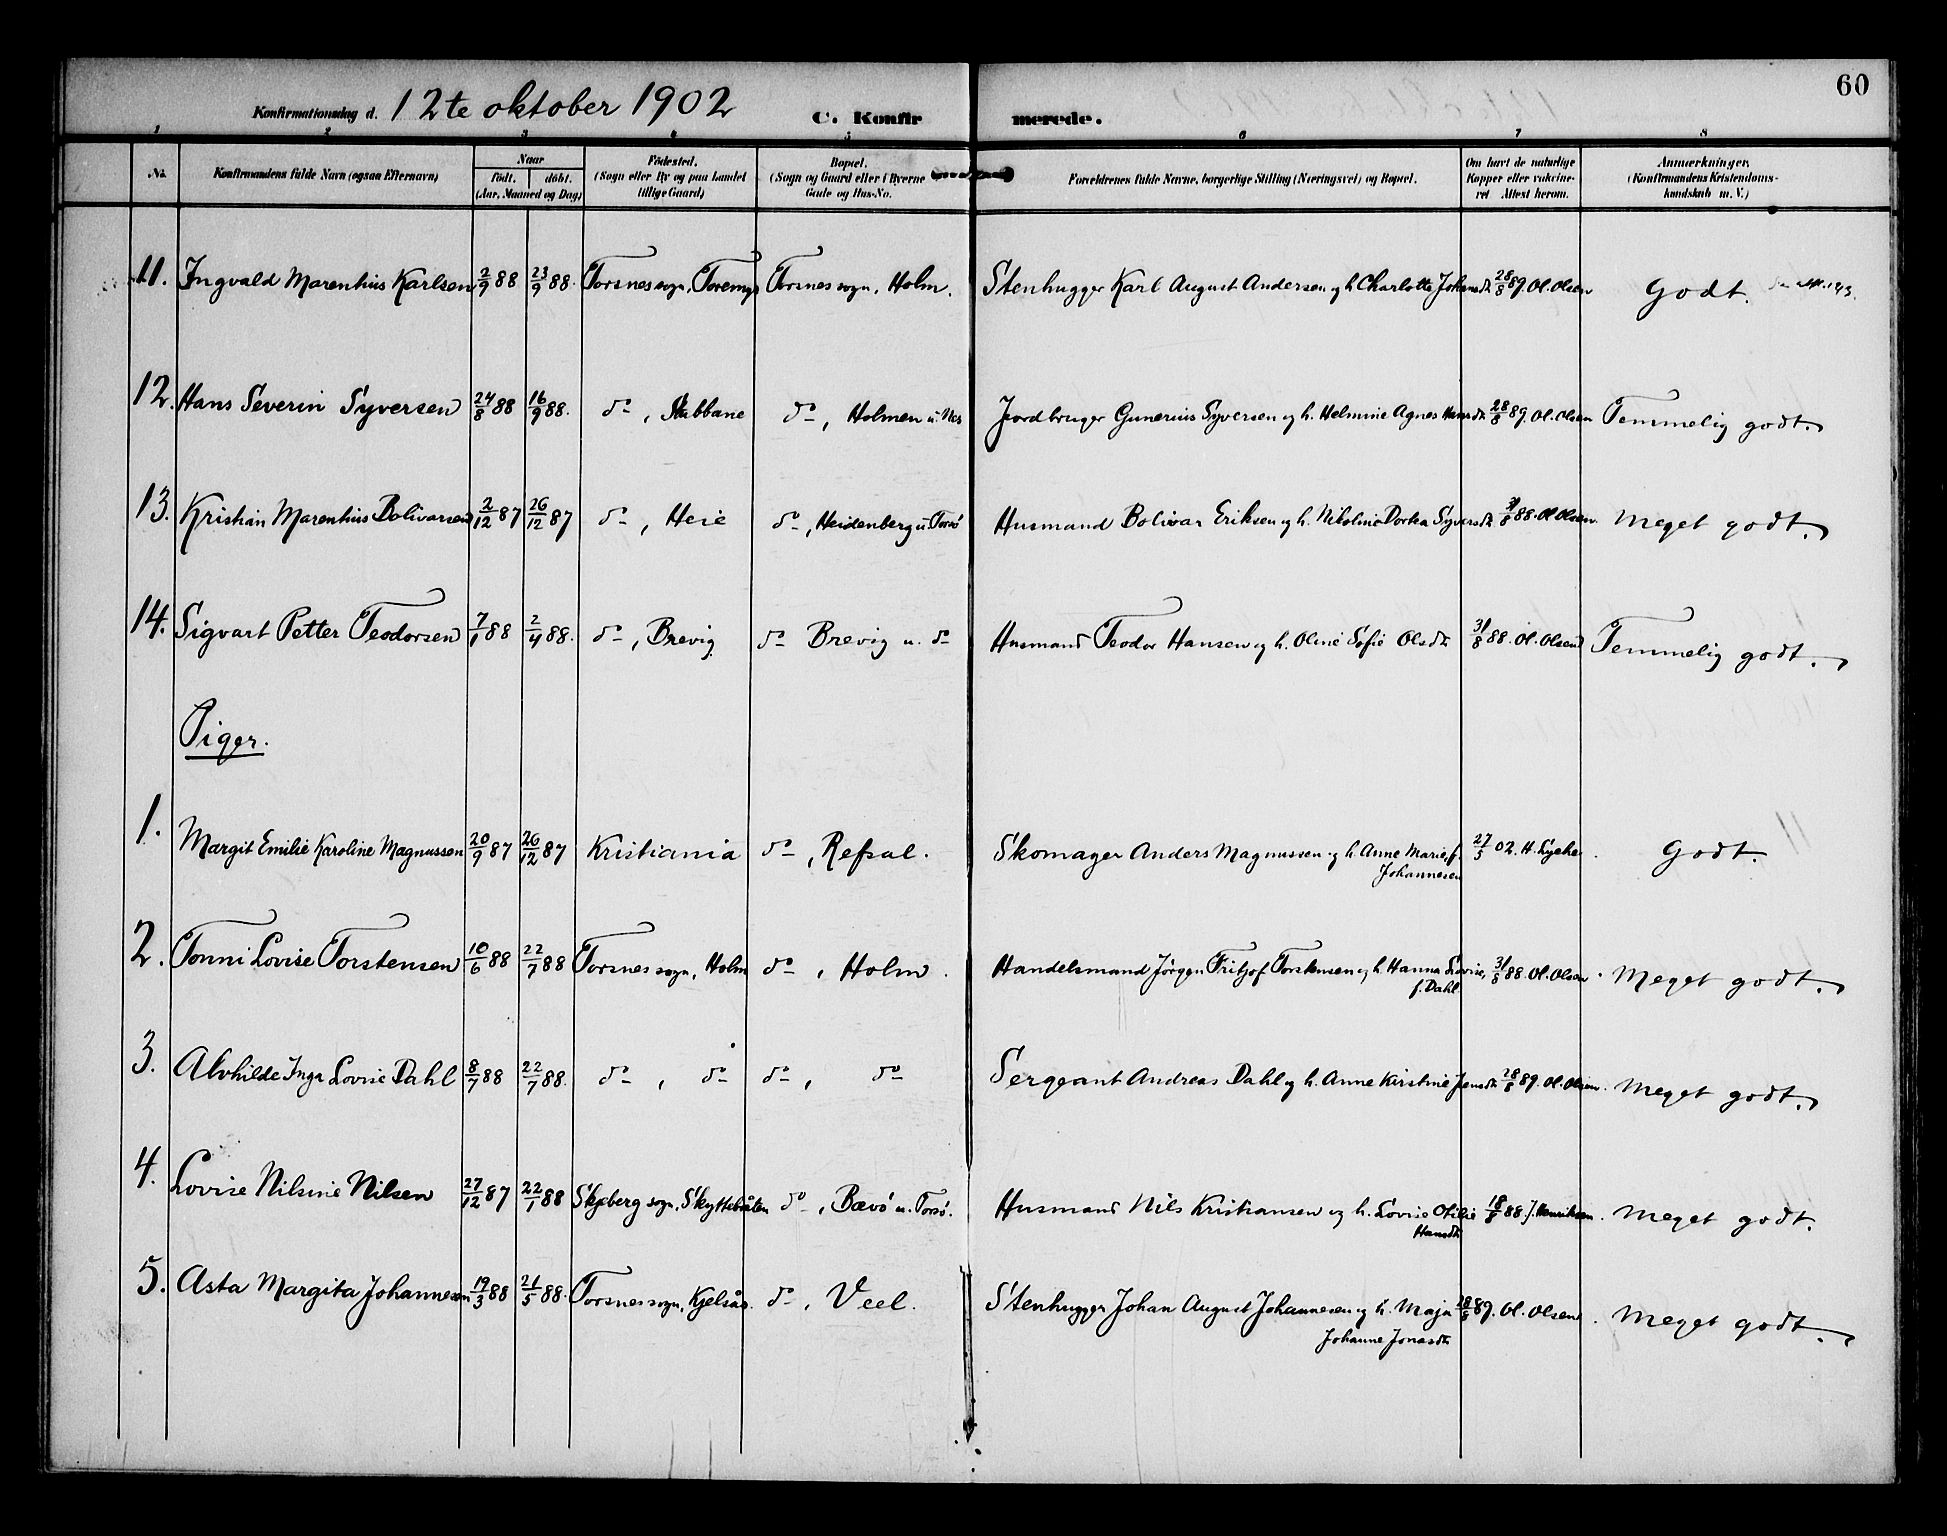 60
Konfirmationsdag d. 12te oktober 1902 C. Konfirmerede.
1 2 3 4 5 6 7 8
No. Konfirmandens fulde Navn (ogsaa Efternavn) Naar født. døbt. (Aar, Maaned og Dag) Fødested. (Sogn eller By og paa Landet tillige Gaard) Bopæl. (Sogn og Gaard eller i Byerne Gade og Hus-No. Forældrenes fulde Navne, borgerlige Stilling (Næringsvei) og Bopæl. Om havt de naturlige Kopper eller vaccineret Attest herom. Anmærkninger. (Konfirmandens Kristendomskundskab m. V.)
11. Ingvald Marenhius Karlsen 2/9 88 23/9 88. Torsnes sogn, Toremyr Torsnes sogn, Holm. Stenhugger Karl August Andersen og h Charlotte Johansdt 28/8 89. Ol. Olsen Godt.
12. Hans Severin Syversen 24/8 88 16/9 88. do, Stubbane do, Holmen u. Nes Jordbruger Gunerius Syversen og h. Helmine Agnes Hansdt 28/8 89. Ol. Olsen Temmelig godt.
13. Kristian Marenhius Bolivarsen 2/12 87 26/12 87 do, Heie do, Heidenberg u. Torsø Husmand Bolivar Eriksen og h. Nikoline Dortea Syversdt 31/8 88. Ol. Olsen. Meget godt.
14. Sigvart Petter Teodorsen 7/1 88 2/4 88. do, Brevig do Brevig u. do Husmand Teodor Hansen og h. Oline Sofie Olsdt 31/8 88. Ol. Olsen Temmelig godt.
Piger.
1. Margit Emilie Karoline Magnussen 20/9 87 26/12 87 Kristiania do, Refsal. Skomager Anders Magnussen og h. Anne Marie, f. 27/5 02. H. Lyche. Godt.
Johannesen
2. Tonni Lovise Torstensen 10/6 88 22/7 88 Torsnes sogn, Holm do, Holm. Handelsmand Jörgen Fritjof Torstensen og h. Hanna Lovise, 31/8 88. Ol. Olsen. Meget godt.
f. Dahl
3. Alvhilde Inga Lovise Dahl 8/7 88 22/7 88. do, do do, do Sergeant Andreas Dahl og h. Anne Kirstine Jensdt 28/8 89. Ol. Olsen. Meget godt.
4. Lovise Nilsine Nilsen 27/12 87 22/1 88 Skjeberg sogn, Skyttebråten do, Bævø u. Torsø. Husmand Nils Kristiansen og h. Lovise Otilie 18/8 88. J. Henriksen. Meget godt.
Hansdt
5. Asta Margita Johannesen 19/3 88 21/5 88. Torsnes sogn, Kjelsås. do, Veel. Stenhugger Johan August Johannesen og h. Maja 28/8 89. Ol. Olsen. Meget godt.
Johanne Jonasdt